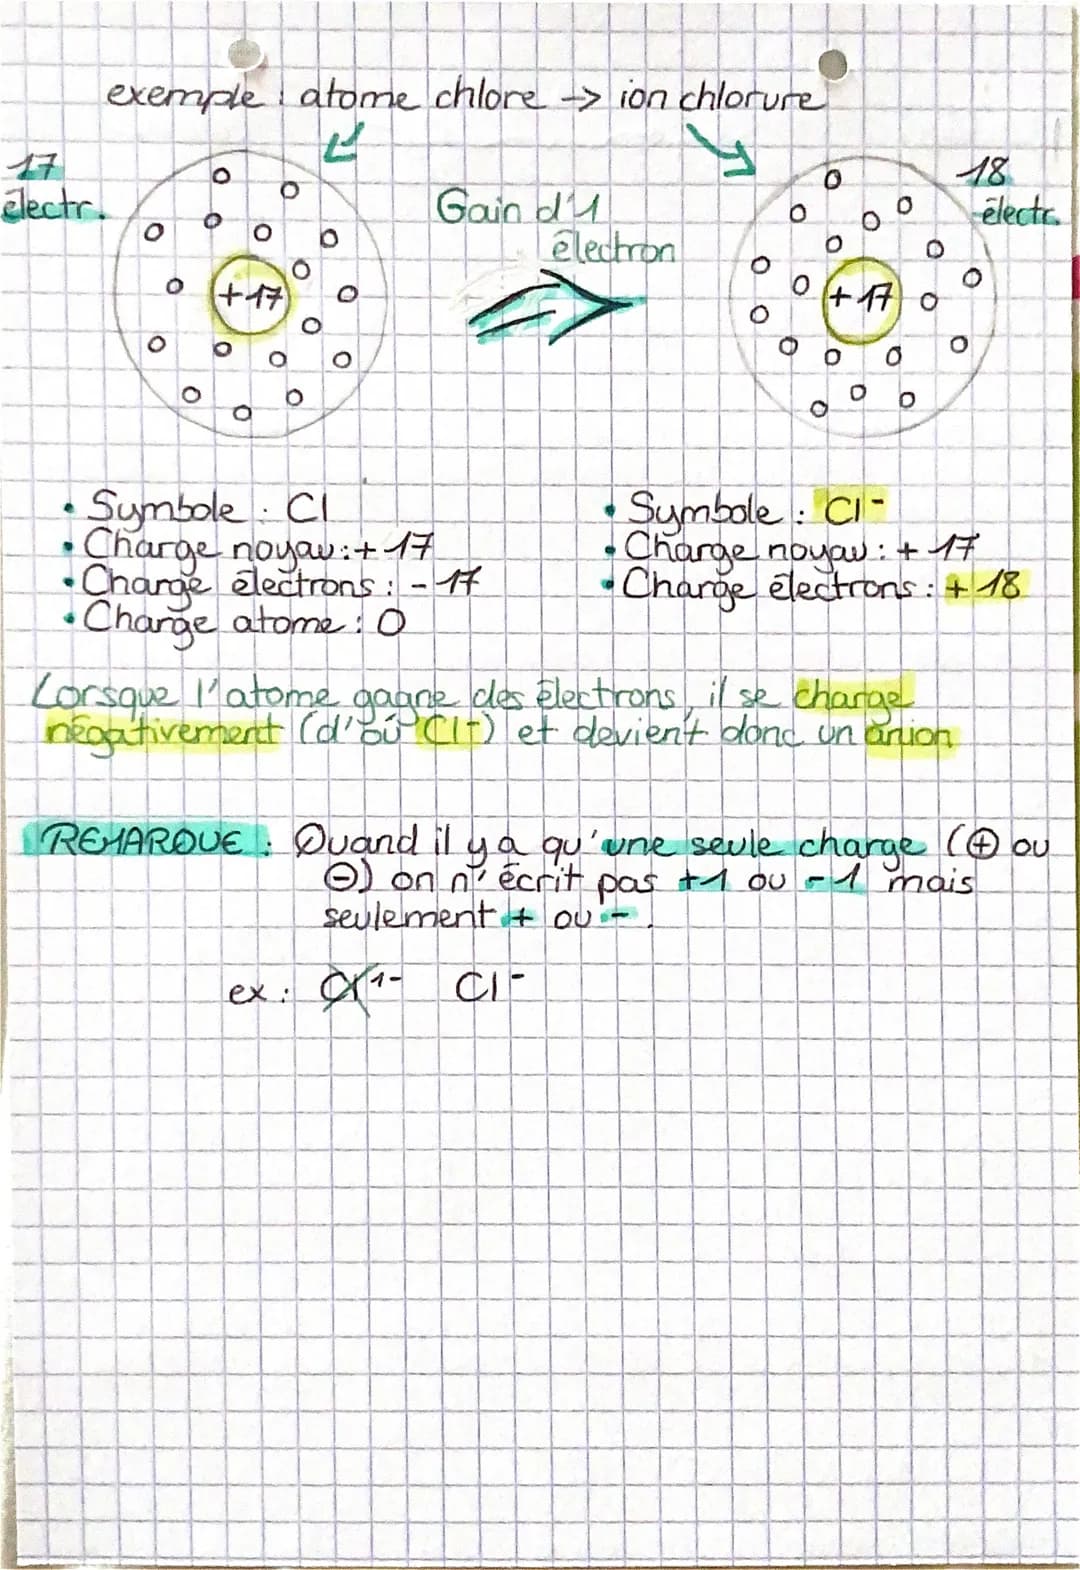 exemple : atome chlore -> ion chlorure
17
électr.
Gain d'1
électron
18
électr.
+17
+17
• Symbole : Cl
• Charge noyau : + 17
• Charge électrons : - 17
• Charge atome : 0
• Symbole : Cl⁻
• Charge noyau : + 17
• Charge électrons : + 18
Lorsque l'atome gagne des électrons, il se charge
négativement (d'où Cl⁻) et devient donc un anion
REMARQUE : Quand il y a qu'une seule charge (⊕ ou
⊖) on n'écrit pas +1 ou -1 mais
seulement + ou -.
ex : Cl¹⁻ Cl⁻